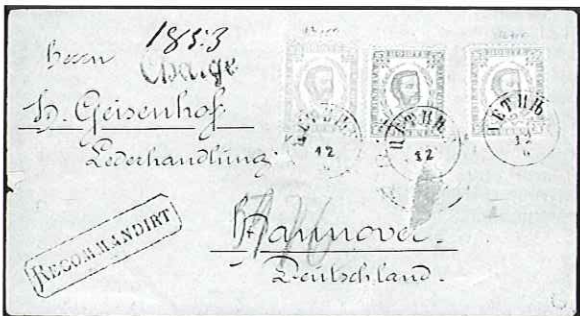 1853
Herrn
Chargé
H. Geisenhof
Lederhandlung
ЦЕТИЊЕ
12
ЦЕТИЊЕ
12
ЦЕТИЊЕ
12
RECOMMANDIRT
Hannover.
Deutschland.